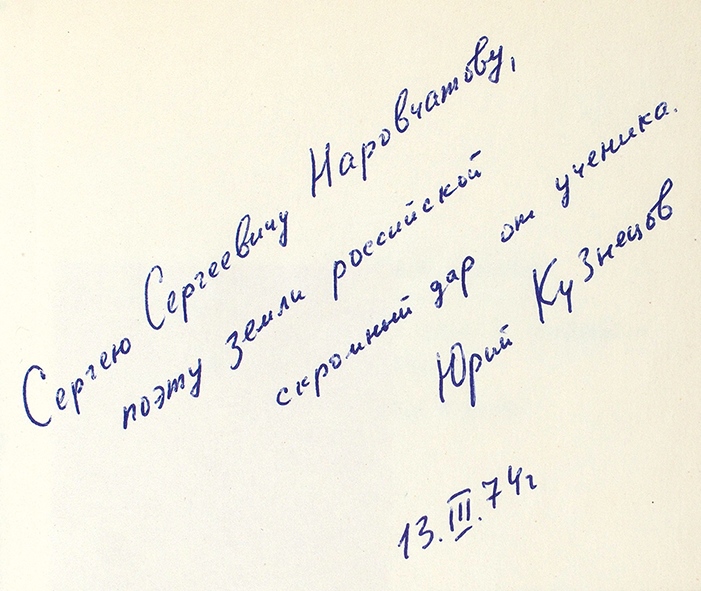 Сергею Сергеевичу Наровчатову,
поэту земли российской
скромный дар от ученика.
Юрий Кузнецов
13.III.74г